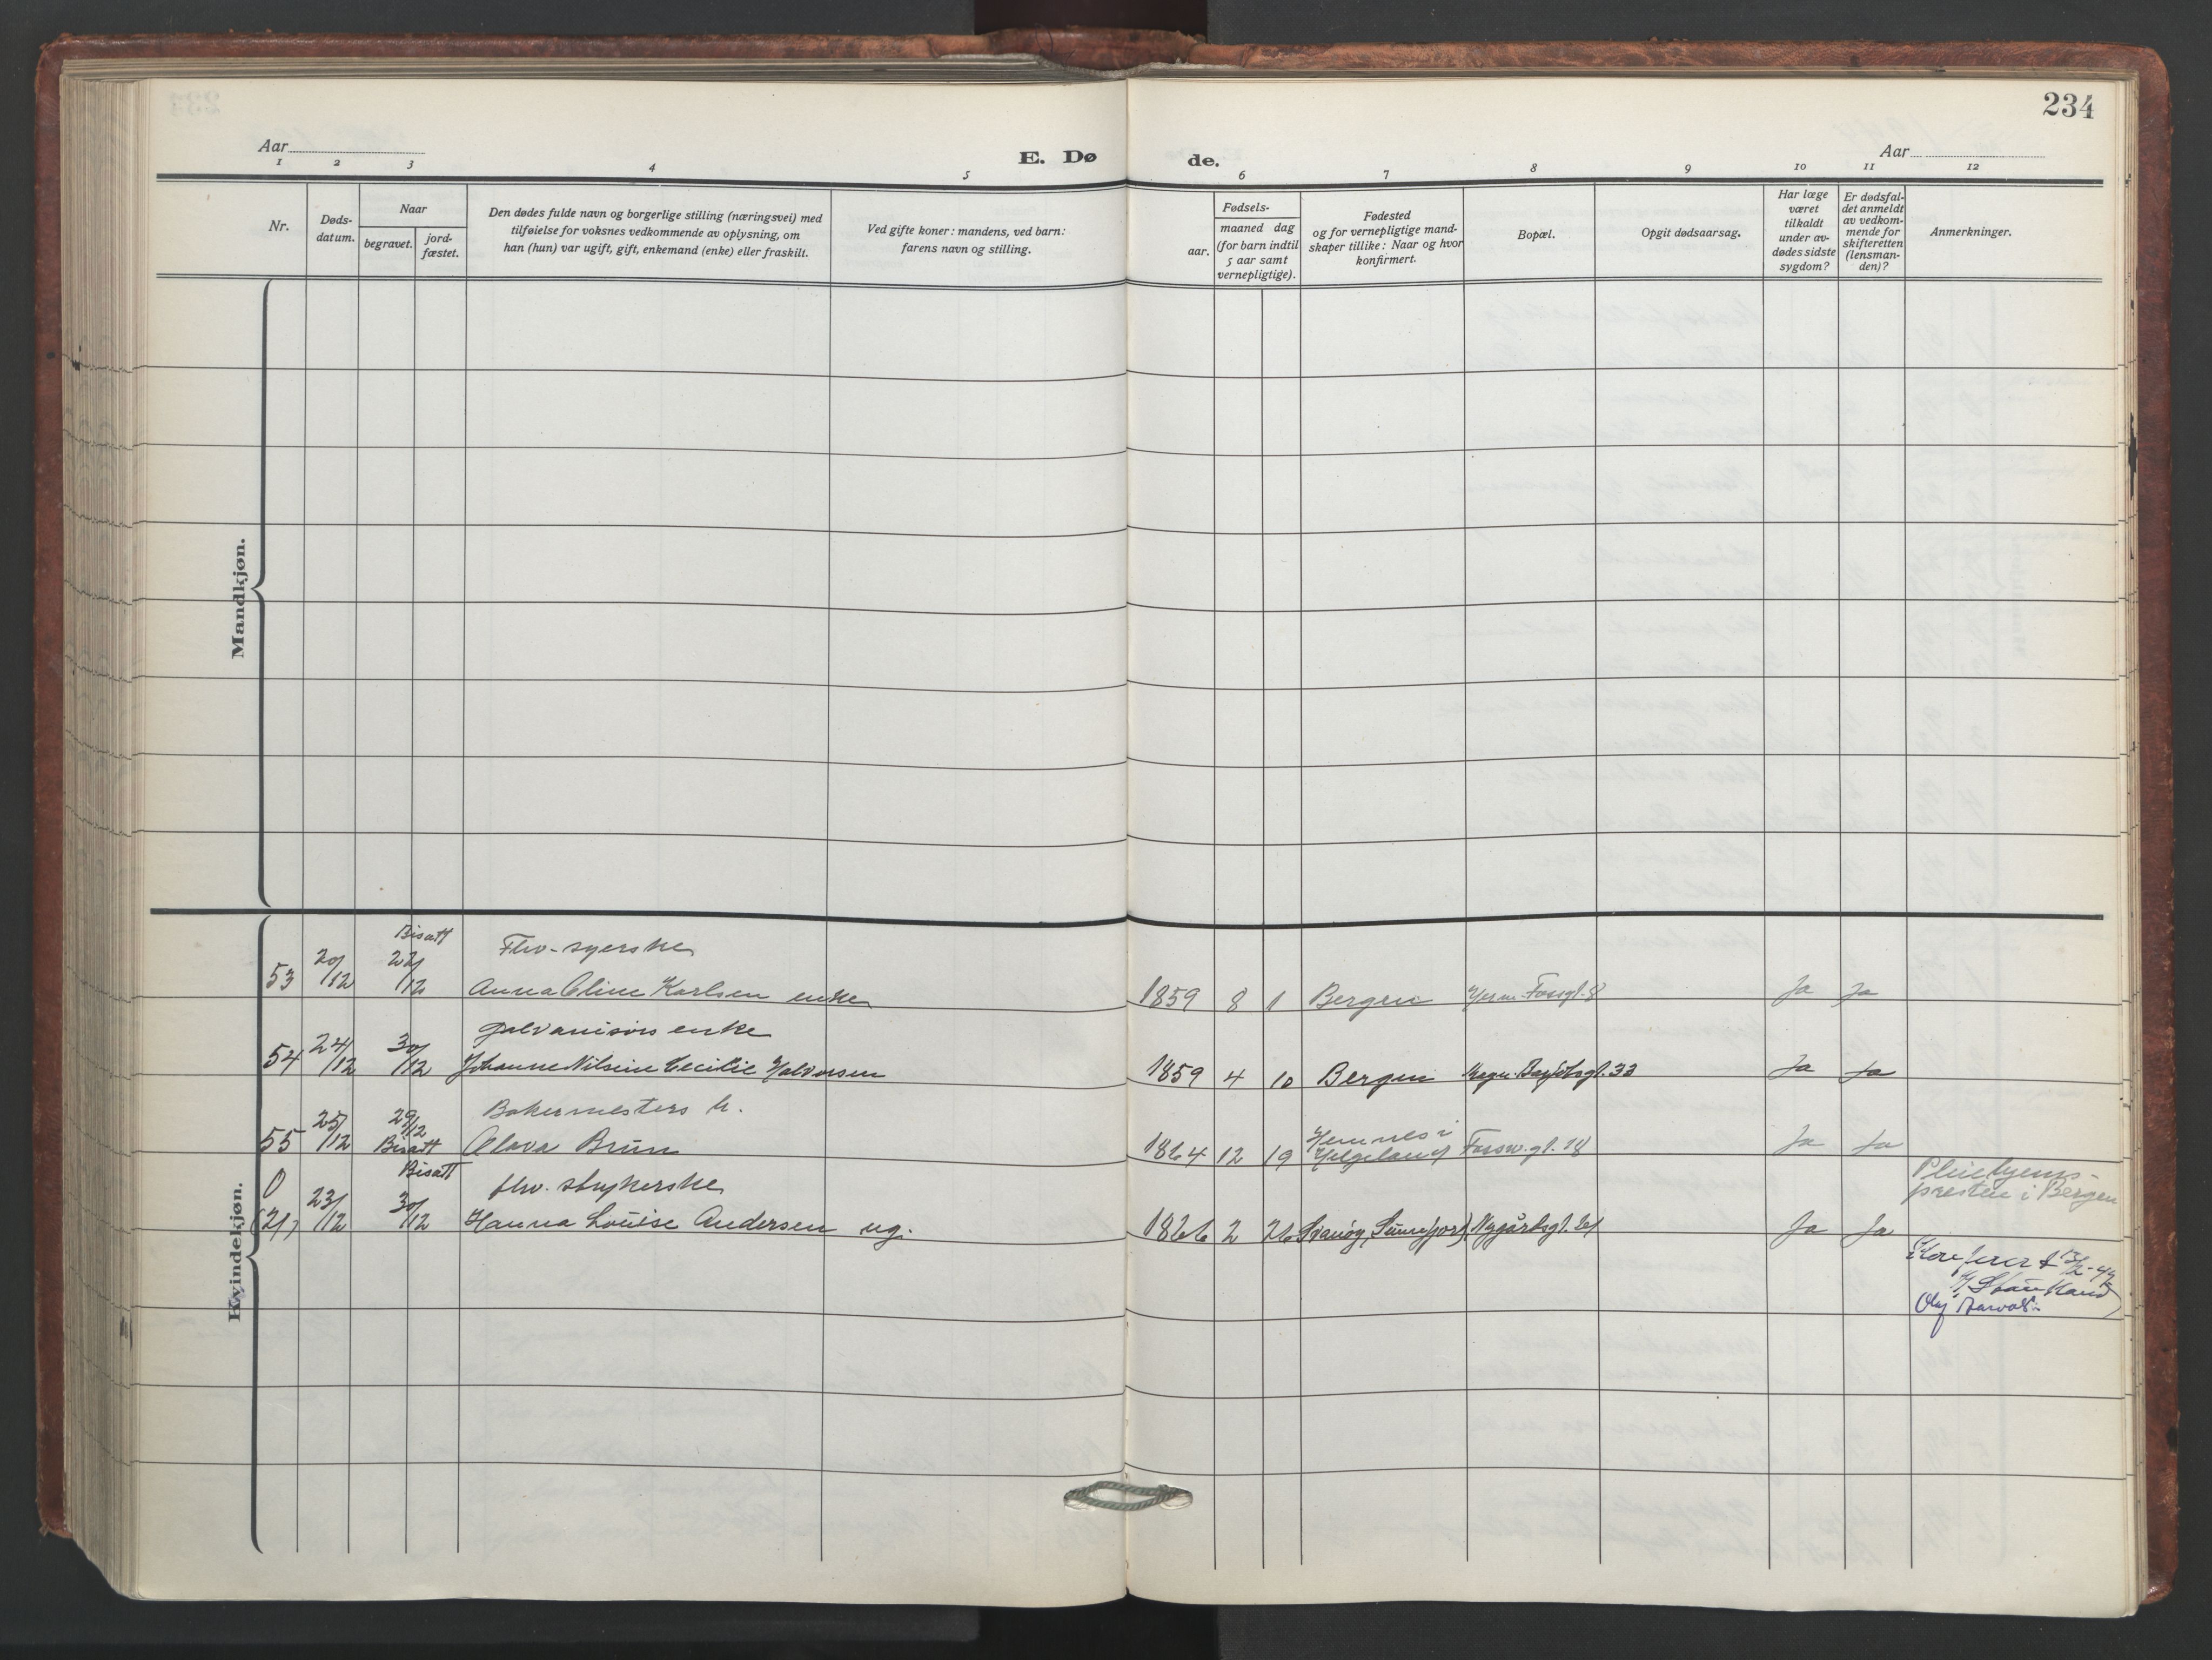 234
Aar
E. Dø de.
Aar
1 2 3 4 5 6 7 8 9 10 11 12
Nr.
Døds-
datum.
Naar
begravet.
jord-
fæstet.
Den dødes fulde navn og borgerlige stilling (næringsvei) med
tilføielse for voksnes vedkommende av oplysning, om
han (hun) var ugift, gift, enkemand (enke) eller fraskilt.
Ved gifte koner: mandens, ved barn:
farens navn og stilling.
Fødsels-
aar.
maaned dag
(for barn indtil
5 aar samt
vernepligtige).
Fødested
og for vernepligtige mand-
skaper tillike: Naar og hvor
konfirmert.
Bopæl.
Opgit dødsaarsag.
Har læge
været
tilkaldt
under av-
dødes sidste
sygdom?
Er dødsfal-
det anmeldt
av vedkom-
mende for
skifteretten
(lensman-
den)?
Anmerkninger.
Mandkjøn.
Kvindekjøn.
Bisatt Fhv. syerske
53 20/12 22/12 Anna Oline Karlsen enke 1859 8 1 Bergen Herm. Fossgt. 8 Ja Ja
galvanisørs enke
54 24/12 30/12 Johanne Nilsine Cecilie Halvorsen 1859 4 10 Bergen 33 Ja Ja
Bakermesters h.
55 25/12 29/12 Bisatt Olava Brun 1864 12 19 Hemnes i Helgeland Fossw.gt. 18 Ja Ja
0 Bisatt fhv. strykerske Pleiehjems-
presten i Bergen
(21) 23/12 30/12 Hanna Louise Andersen ug. 1866 2 26 Svanøy, Sunnfjord Nygårdsgt. Ja Ja
Konferert
Olaf